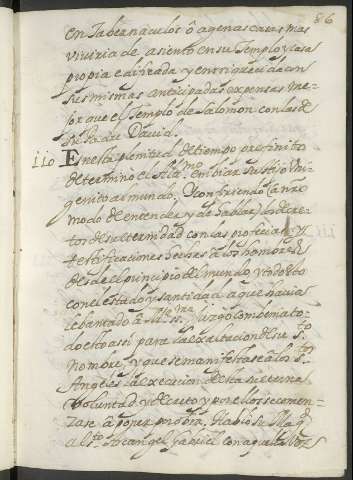 86
en Tabernaculos ô agenas casas mas
viviria de asiento en su Templo y casa
propia edificada y enrriquecida con
sus mismas anticipadas expensas me-
jor que el Templo de Salomon con las de
su Padre David.
110 En esta plenitud de tiempo prefinito
determino el Altissmo. embiar su Hijo Uni-
genito al mundo. Y confiriendo (a nro
modo de entender y de hablar) los decre-
tos de su eternidad con las profecias y
testificaciones hechas a los hombres
desde el principio del mundo, y todo esto
con el estado y santidad a que havia
lebantado â Ma. ssma. Juzgo combenia to-
do esto assi para la exaltacion de su sto.
nombre, y que se manifestase a los stos.
Angeles la execucion de esta su eterna
voluntad, y decreto y por ellos se comen-
zase â poner por obra. Hablo su Magd.
al sto. Arcangel Gabriel con aquella voz